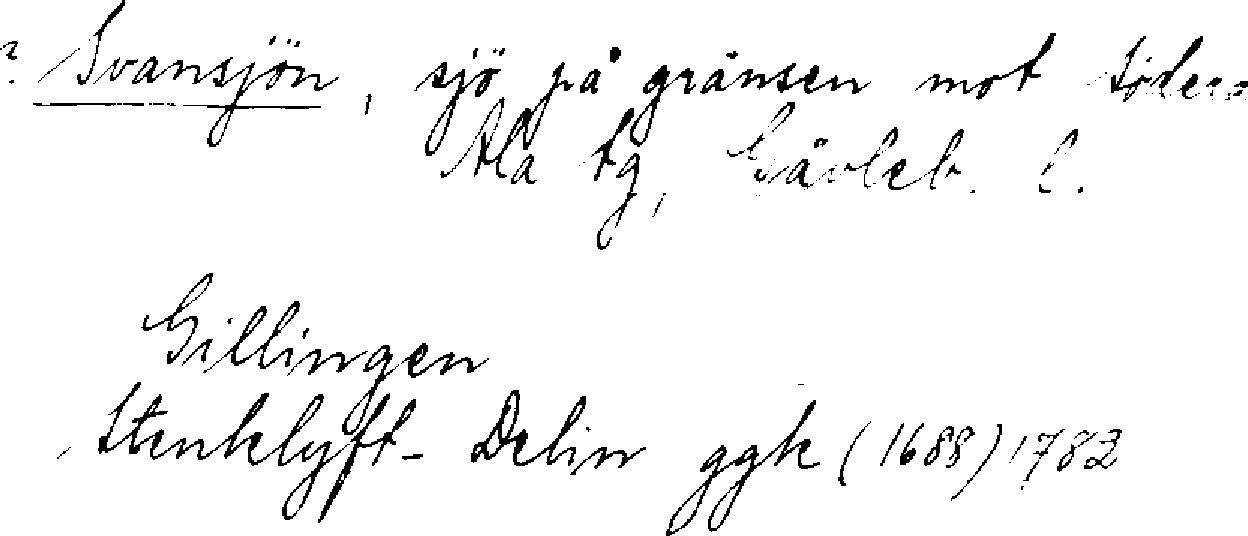 ? Svansjön, sjö på gränsen mot Södera
Ala tg, Gävleb. l.
Gillingen
Stenklyft- Delin ggk (1688) 1782